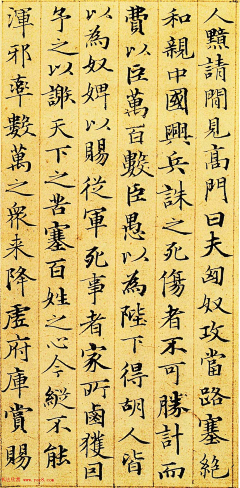 人黯請閒見高門曰夫匈奴攻當路塞絕
和親中國興兵誅之死傷者不可勝計而
費以巨萬百數臣愚以為陛下得胡人皆
以為奴婢以賜從軍死事者家所鹵獲因
予之以謝天下之苦塞百姓之心今縱不能
渾邪率數萬之衆来降虛府庫賞賜